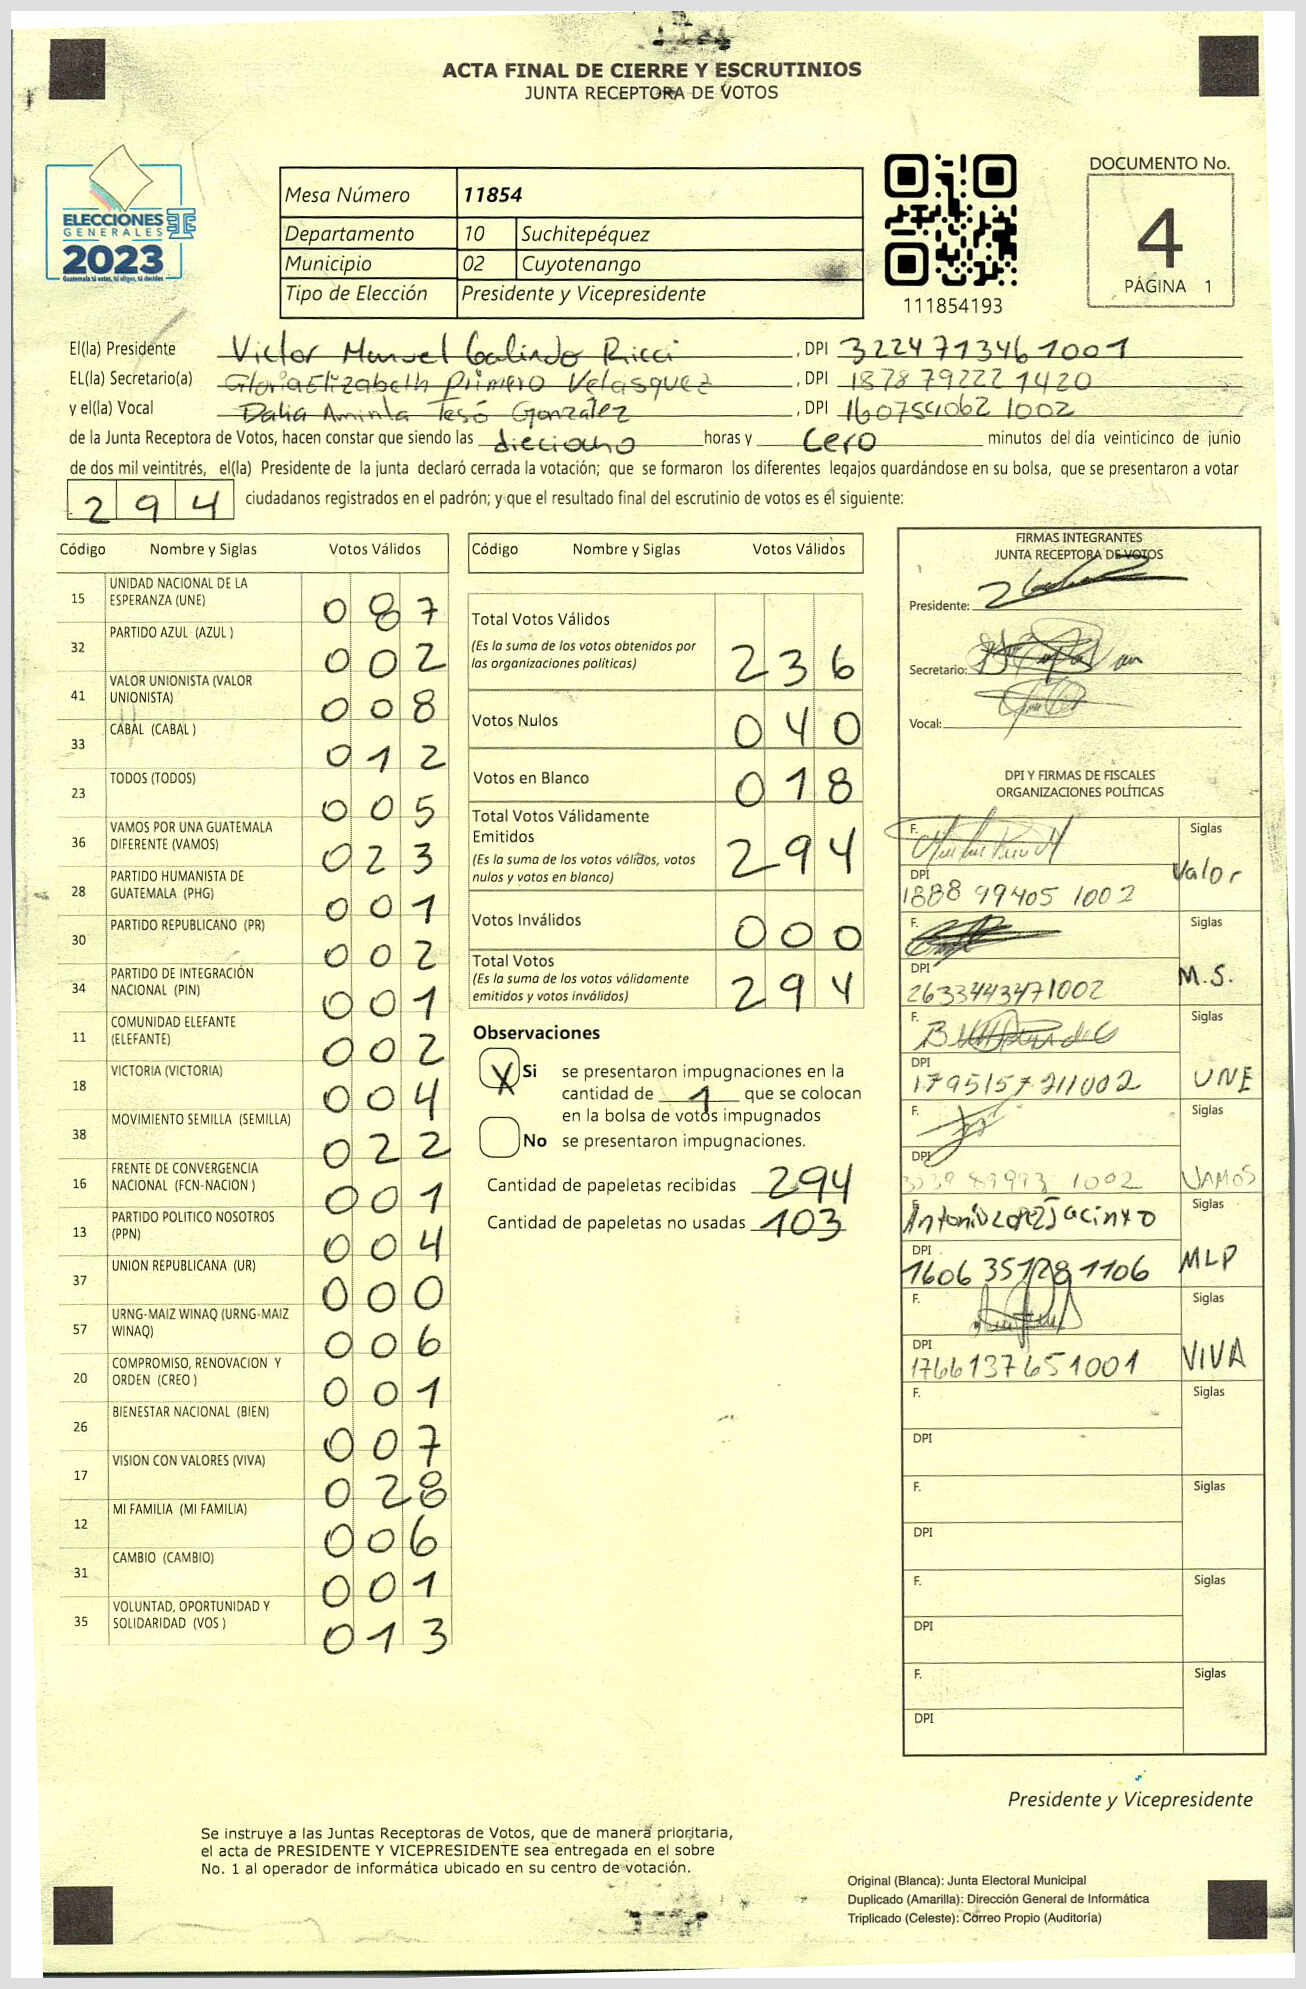 ACTA FINAL DE CIERRE Y ESCRUTINIOS
JUNTA RECEPTORA DE VOTOS
ELECCIONES
GENERALES
2023
Guatemala tú votas, tú eliges, tú decides
Mesa Número 11854
Departamento 10 Suchitepéquez
Municipio 02 Cuyotenango
Tipo de Elección Presidente y Vicepresidente
111854193
DOCUMENTO No.
4
PÁGINA 1
El(la) Presidente Victor Manuel Galindo Ricci , DPI 322471346 1001
EL(la) Secretario(a) Gloria Elizabeth Primero Velasquez , DPI 187879222 1420
y el(la) Vocal Dalia Aminta Tesó González , DPI 160759062 1002
de la Junta Receptora de Votos, hacen constar que siendo las dieciocho horas y cero minutos del día veinticinco de junio
de dos mil veintitrés, el(la) Presidente de la junta declaró cerrada la votación; que se formaron los diferentes legajos quardándose en su bolsa, que se presentaron a votar
294 ciudadanos registrados en el padrón; y que el resultado final del escrutinio de votos es él siguiente:
Código Nombre y Siglas Votos Válidos
15 UNIDAD NACIONAL DE LA ESPERANZA (UNE) 087
32 PARTIDO AZUL (AZUL ) 002
41 VALOR UNIONISTA (VALOR UNIONISTA) 008
33 CABAL (CABAL ) 012
23 TODOS (TODOS) 005
36 VAMOS POR UNA GUATEMALA DIFERENTE (VAMOS) 023
28 PARTIDO HUMANISTA DE GUATEMALA (PHG) 001
30 PARTIDO REPUBLICANO (PR) 002
34 PARTIDO DE INTEGRACIÓN NACIONAL (PIN) 001
11 COMUNIDAD ELEFANTE (ELEFANTE) 002
18 VICTORIA (VICTORIA) 004
38 MOVIMIENTO SEMILLA (SEMILLA) 022
16 FRENTE DE CONVERGENCIA NACIONAL (FCN-NACION ) 001
13 PARTIDO POLITICO NOSOTROS (PPN) 004
37 UNION REPUBLICANA (UR) 000
57 URNG-MAIZ WINAQ (URNG-MAIZ WINAQ) 006
20 COMPROMISO, RENOVACION Y ORDEN (CREO ) 001
26 BIENESTAR NACIONAL (BIEN) 007
17 VISION CON VALORES (VIVA) 028
12 MI FAMILIA (MI FAMILIA) 006
31 CAMBIO (CAMBIO) 001
35 VOLUNTAD, OPORTUNIDAD Y SOLIDARIDAD (VOS ) 013
Código Nombre y Siglas Votos Válidos
Total Votos Válidos
(Es la suma de los votos obtenidos por
las organizaciones políticas) 236
Votos Nulos 040
Votos en Blanco 018
Total Votos Válidamente
Emitidos
(Es la suma de los votos válidos, votos
nulos y votos en blanco) 294
Votos Inválidos 000
Total Votos
(Es la suma de los votos válidamente
emitidos y votos inválidos) 294
Observaciones
X Si se presentaron impugnaciones en la
cantidad de 1 que se colocan
en la bolsa de votos impugnados
No se presentaron impugnaciones.
Cantidad de papeletas recibidas 294
Cantidad de papeletas no usadas 103
FIRMAS INTEGRANTES
JUNTA RECEPTORA DE VOTOS
Presidente:
Secretario:
Vocal:
DPI Y FIRMAS DE FISCALES
ORGANIZACIONES POLÍTICAS
F. Siglas
DPI 1888 99405 1002 Valor
F. Siglas
DPI 2633443471002 M.S.
F. Siglas
DPI 1795157211002 UNE
F. Siglas
DPI 1002 VAMOS
F. Antonio Lopez Jacinto Siglas
DPI 1606 35128 1106 MLP
F. Siglas
DPI 1766137651001 VIVA
F. Siglas
DPI
F. Siglas
DPI
F. Siglas
DPI
F. Siglas
DPI
Presidente y Vicepresidente
Se instruye a las Juntas Receptoras de Votos, que de manera prioritaria,
el acta de PRESIDENTE Y VICEPRESIDENTE sea entregada en el sobre
No. 1 al operador de informática ubicado en su centro de votación.
Original (Blanca): Junta Electoral Municipal
Duplicado (Amarilla): Dirección General de Informática
Triplicado (Celeste): Correo Propio (Auditoría)